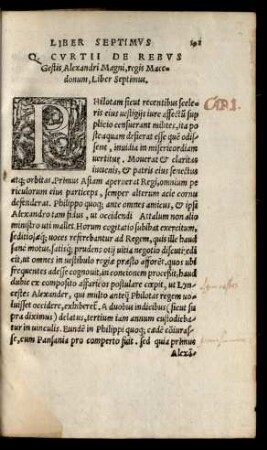 LIBER SEPTIMVS
Q. CVRTII DE REBVS
Gestis Alexandri Magni, regis Mace-
donum, Liber Septimus.
CAP. I.
PHilotam sicut recentibus scele-
ris eius uestigijs iure affectũ sup-
plicio censuerant milites, ita po-
steaquam desierat esse quẽ odis-
sent, inuidia in misericordiam
uertitur. Mouerat & claritas
iuuenis, & patris eius senectus
atq; orbitas. Primus Asiam aperuerat Regi, omnium pe-
riculorum eius particeps, semper alterum acie cornu
defenderat. Philippo quoq; ante omnes amicus, & ipsi
Alexandro tam fidus, ut occidendi Attalum non alio
ministro uti mallet. Horum cogitatio subibat exercitum,
seditiosæq; uoces referebantur ad Regem, quis ille haud
sane motus, satisq; prudens otij uitia negotio discuti: edi-
cit, ut omnes in uestibulo regiæ præsto afforẽt. quos ubi
frequentes adesse cognouit, in concionem processit. haud
dubie ex composito Aphanes postulare cœpit, ut Lyn-
cestes Alexander, qui multo anteq̃ Philotas regem uo-
luisset occidere, exhiberet̃. A duobus indicibus (sicut su
pra diximus) delatus, tertium iam annum custodieba-
tur in uinculis. Eundẽ in Philippi quoq; cædẽ cõiuras-
se, cum Pausania pro comperto fuit. sed quia primus
Alexã-